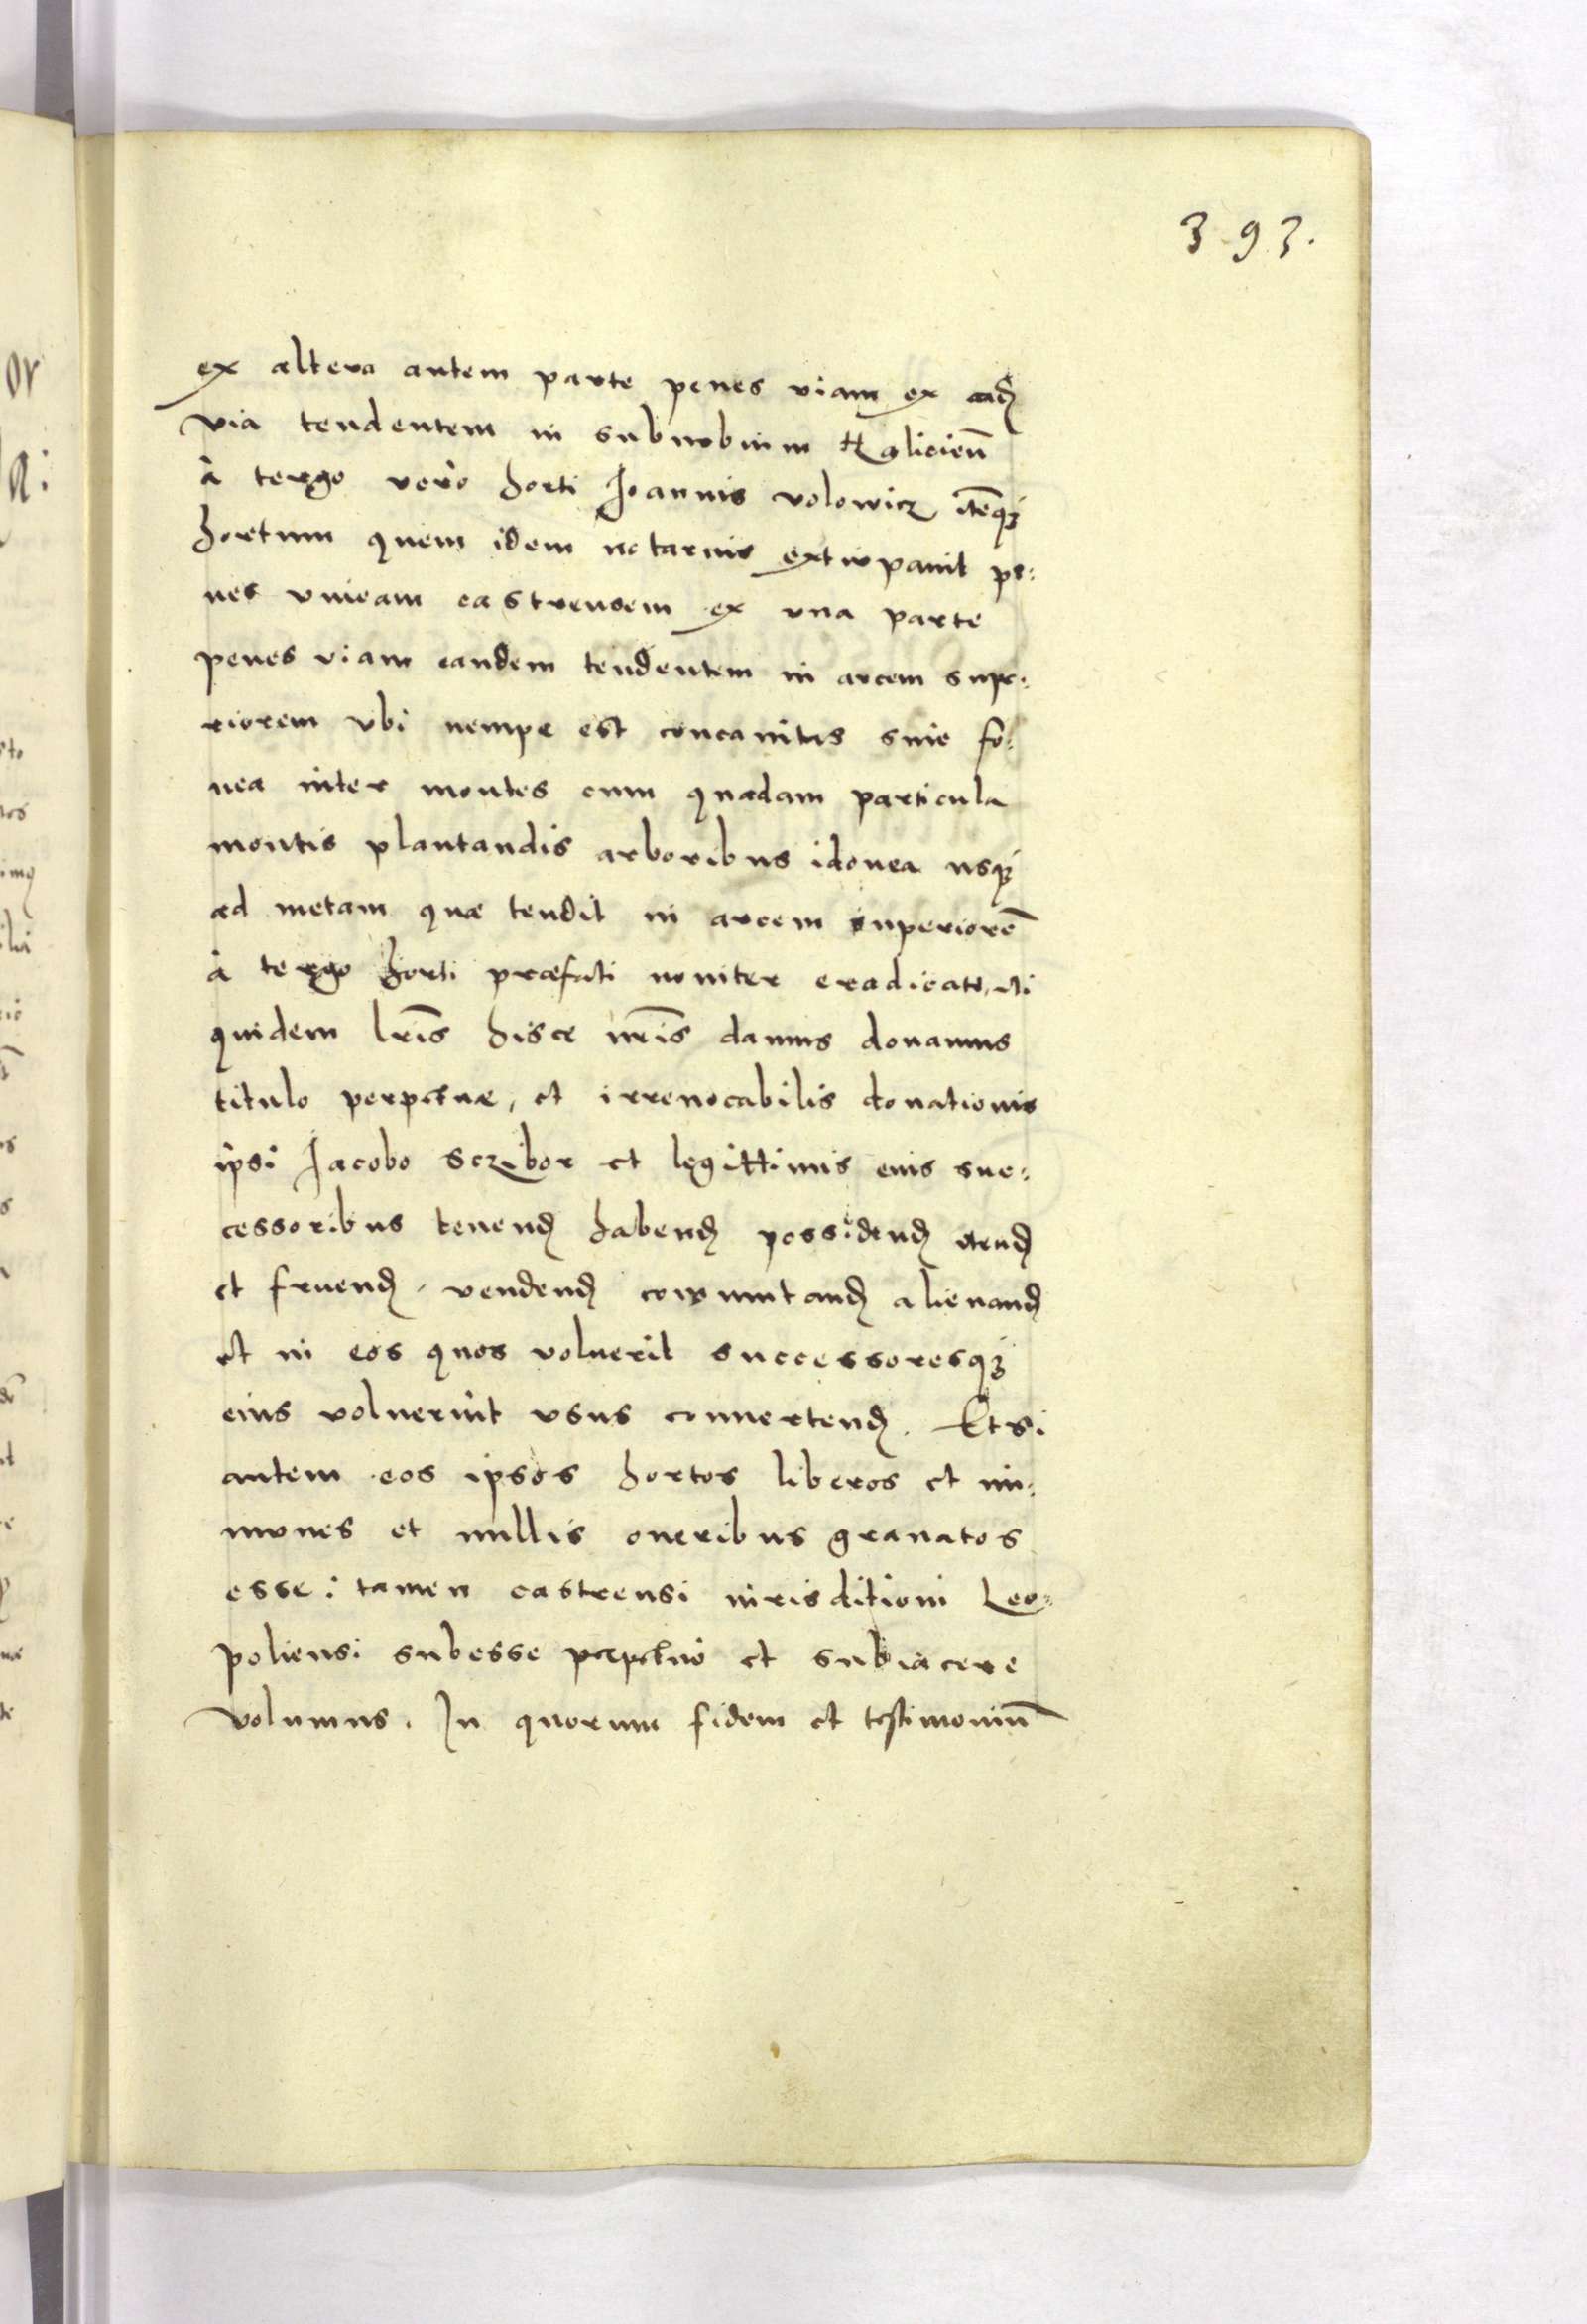 393.
ex altera autem parte penes viam ex ead̃
via tendentem in suburbium Haliciens̃
à tergo verò horti Ioannis Volowicz itẽq;
hortum quem idem notarius extirpauit pe:
nes vineam castrensem ex una parte
penes viam eandem tendentem in arcem supe:
riorem vbi nempe est concauitas siue fo:
uea inter montes cum quadam particula
montis plantandis arboribus idonea usq;
ad metam quae tendit in arcem superiorẽ
à tergo horti praefati nouiter eradicati, uti
quidem lr̃is hisce nr̃is damus donamus
titulo perpetuae, et irreuocabilis donationis
ipsi Iacobo Scribor et legittimis eius suc:
cessoribus tenend̃ habend̃ possidend̃ utend̃
et fruend̃. vendend̃ commutand̃ alienand̃
et in eos quos voluerit successoresq;
eius voluerint vsus conuertend̃. Etsi
autem eos ipsos hortos liberos et im:
munes et nullis oneribus grauatos
esse: tamen castrensi iurisditioni Leo:
poliensi subesse perpetuò et subiacere
volumus. In quorum fidem et testimoniũ
or
a: